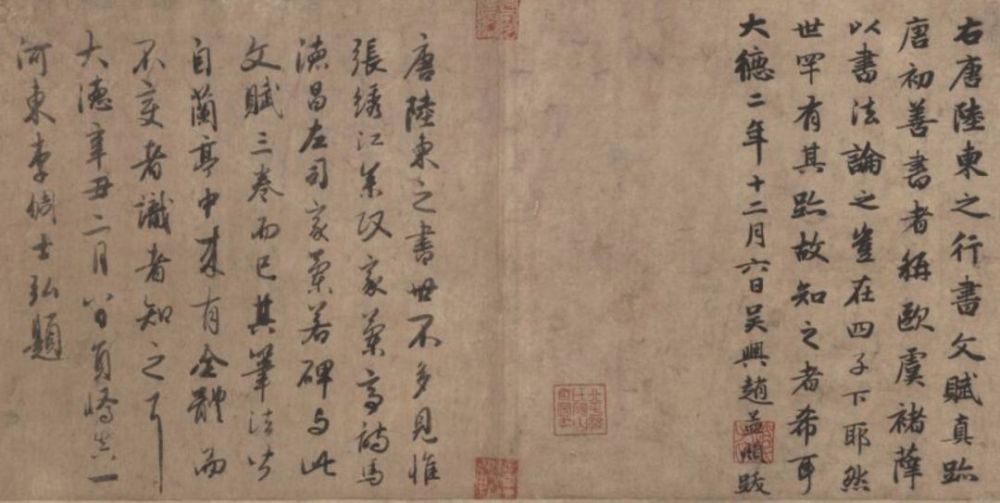 右唐陸柬之行書文賦真跡
唐初善書者稱歐虞褚薛
以書法論之豈在四子下耶然
世罕有其跡故知之者希耳
大德二年十二月六日吳興趙孟頫跋
唐陸柬之書世不多見惟
張綉江參政家蘭亭詩馬
德昌左司家蘭若碑与此
文賦三卷而已其筆法皆
自蘭亭中來有全體而
不變者識者知之耳
大德辛丑二月八日員嶠真一
河東李倜士弘題